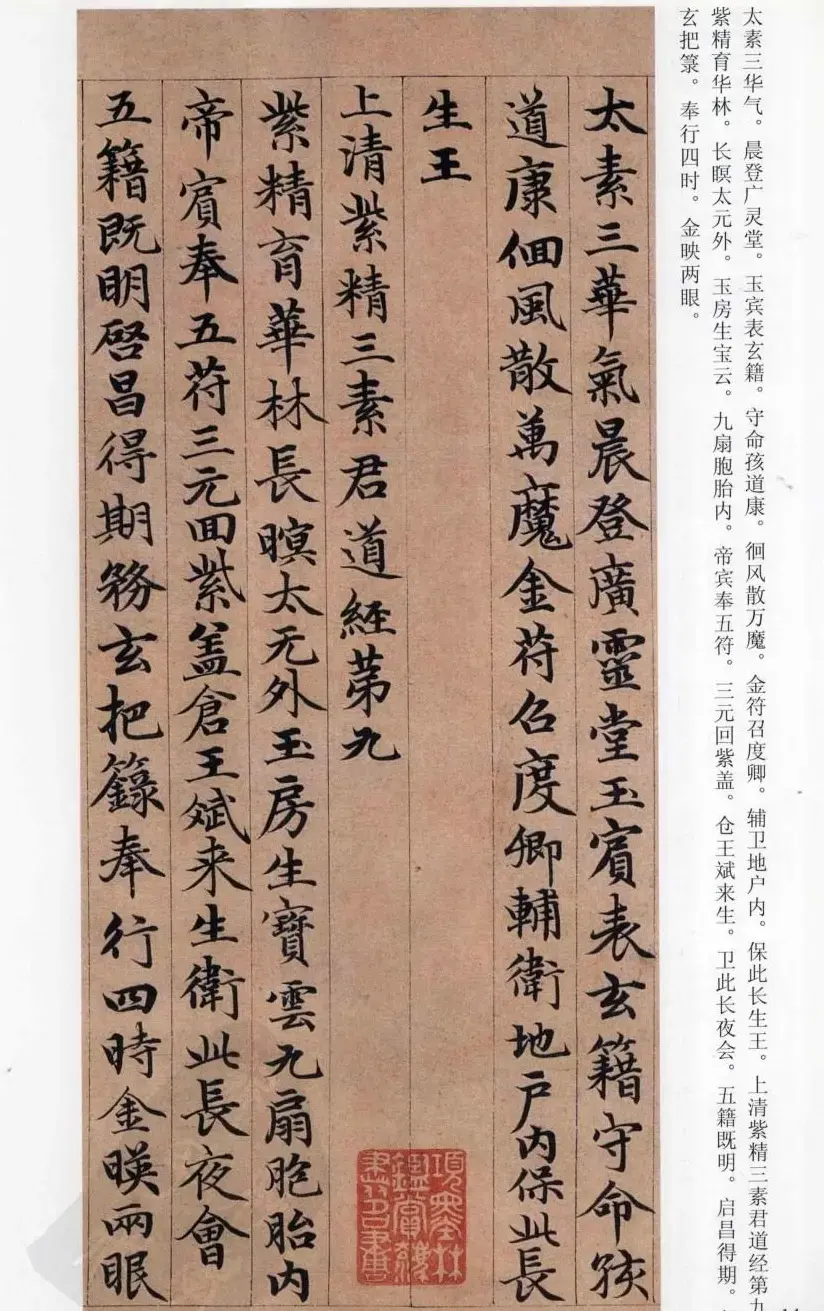 太素三华气。晨登广灵堂。玉宾表玄籍。守命孩道康。徊风散万魔。金符召度卿。辅卫地户内。保此长生王。上清紫精三素君道经第九
紫精育华林。长瞑太元外。玉房生宝云。九扇胞胎内。帝宾奉五符。三元回紫盖。仓王斌来生。卫此长夜会。五籍既明。启昌得期。
玄把箓。奉行四时。金映两眼。
太素三華氣晨登廣靈堂玉賔表玄籍守命孩
道康佪風散萬魔金苻召度卿輔衛地戶内保此長
生王
上清紫精三素君道經苐九
紫精育華林長暝太无外玉房生寶雲九扇胞胎内
帝賔奉五苻三元回紫盖倉王斌来生衛此長夜會
五籍既明啓昌得期務玄把籙奉行四時金暎兩眼